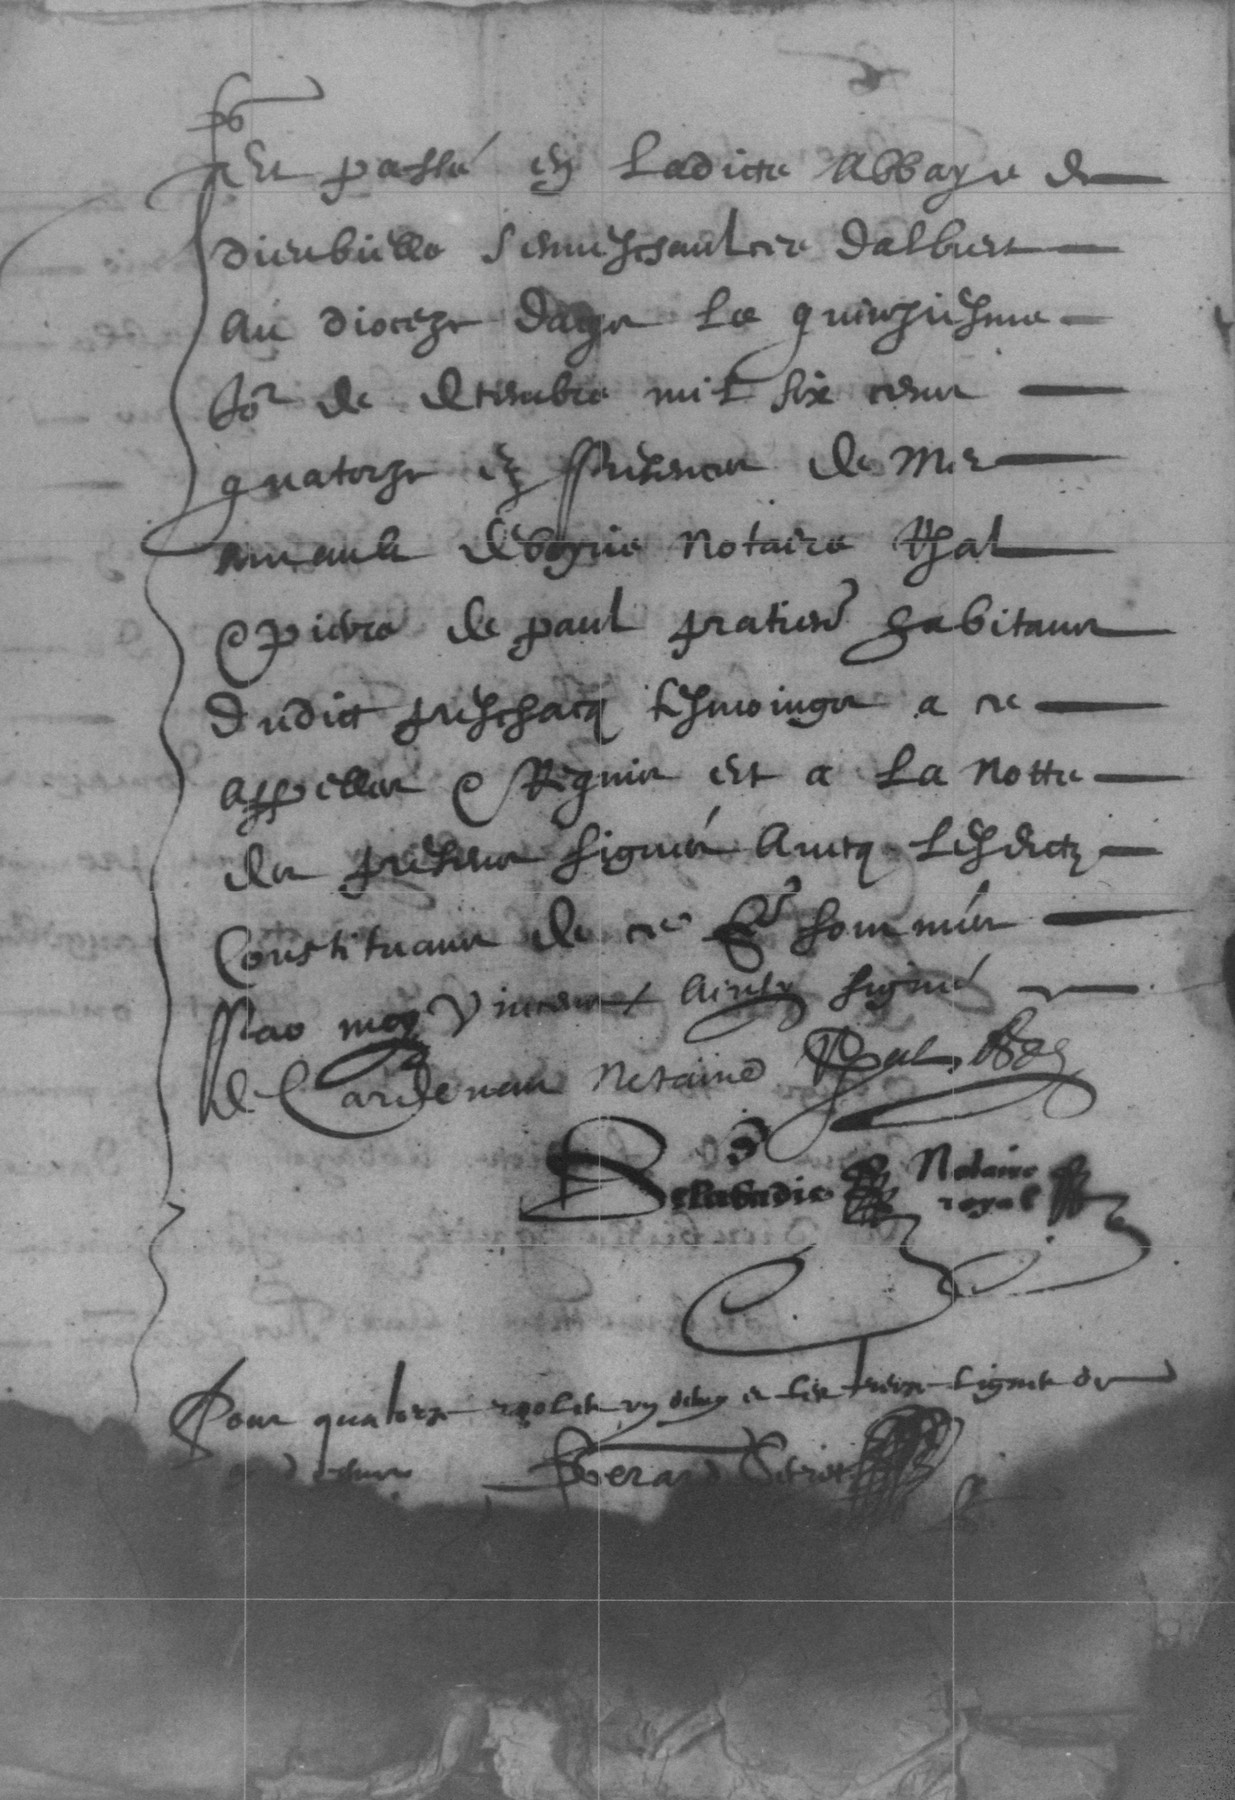 Et passé en ladicte abbaye de
dieubielle seneschaulcee dalbret
au dioceze dacqz le quinziesme
Jor de decembre mil six cens
quatorze en presence de Me
arnault notaire Royal
et pierre de paul praticien habitans
dudict preschacq tesmoings a ce
appelles et Requis est a la notte
des presens signés avecq lesdictz
Constituans de ce sommés
par moy Vincens ainsy signé
de Cardenau Notaire Royal
Delabadie Notaire
royal
Pour quatorze rolles un demy et treize lignes de
Gerard